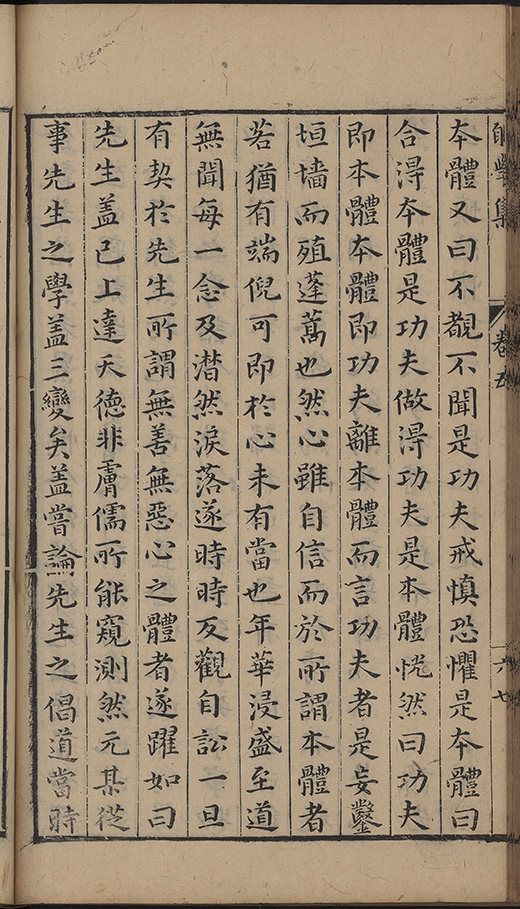 學集
卷五
六七
本體又曰不覩不聞是功夫戒慎恐懼是本體曰
合得本體是功夫做得功夫是本體恍然曰功夫
即本體本體即功夫離本體而言功夫者是妄鑿
垣墻而殖蓬蒿也然心雖自信而於所謂本體者
若猶有端倪可即於心未有當也年華浸盛至道
無聞每一念及潸然淚落遂時時反觀自訟一旦
有契於先生所謂無善無惡心之體者遂躍如曰
先生盖已上達天德非膚儒所能窺測然元某從
事先生之學盖三變矣盖嘗論先生之倡道當時